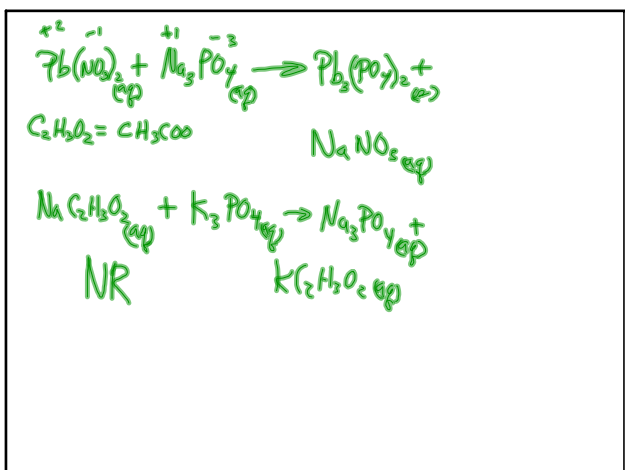 +2 -1 +1 -3
Pb(NO3)2 (aq) + Na3PO4 (aq) → Pb3(PO4)2 (s) +
C2H3O2 = CH3COO
NaNO3 (aq)
NaC2H3O2 (aq) + K3PO4 (aq) → Na3PO4 (aq) +
NR KC2H3O2 (aq)